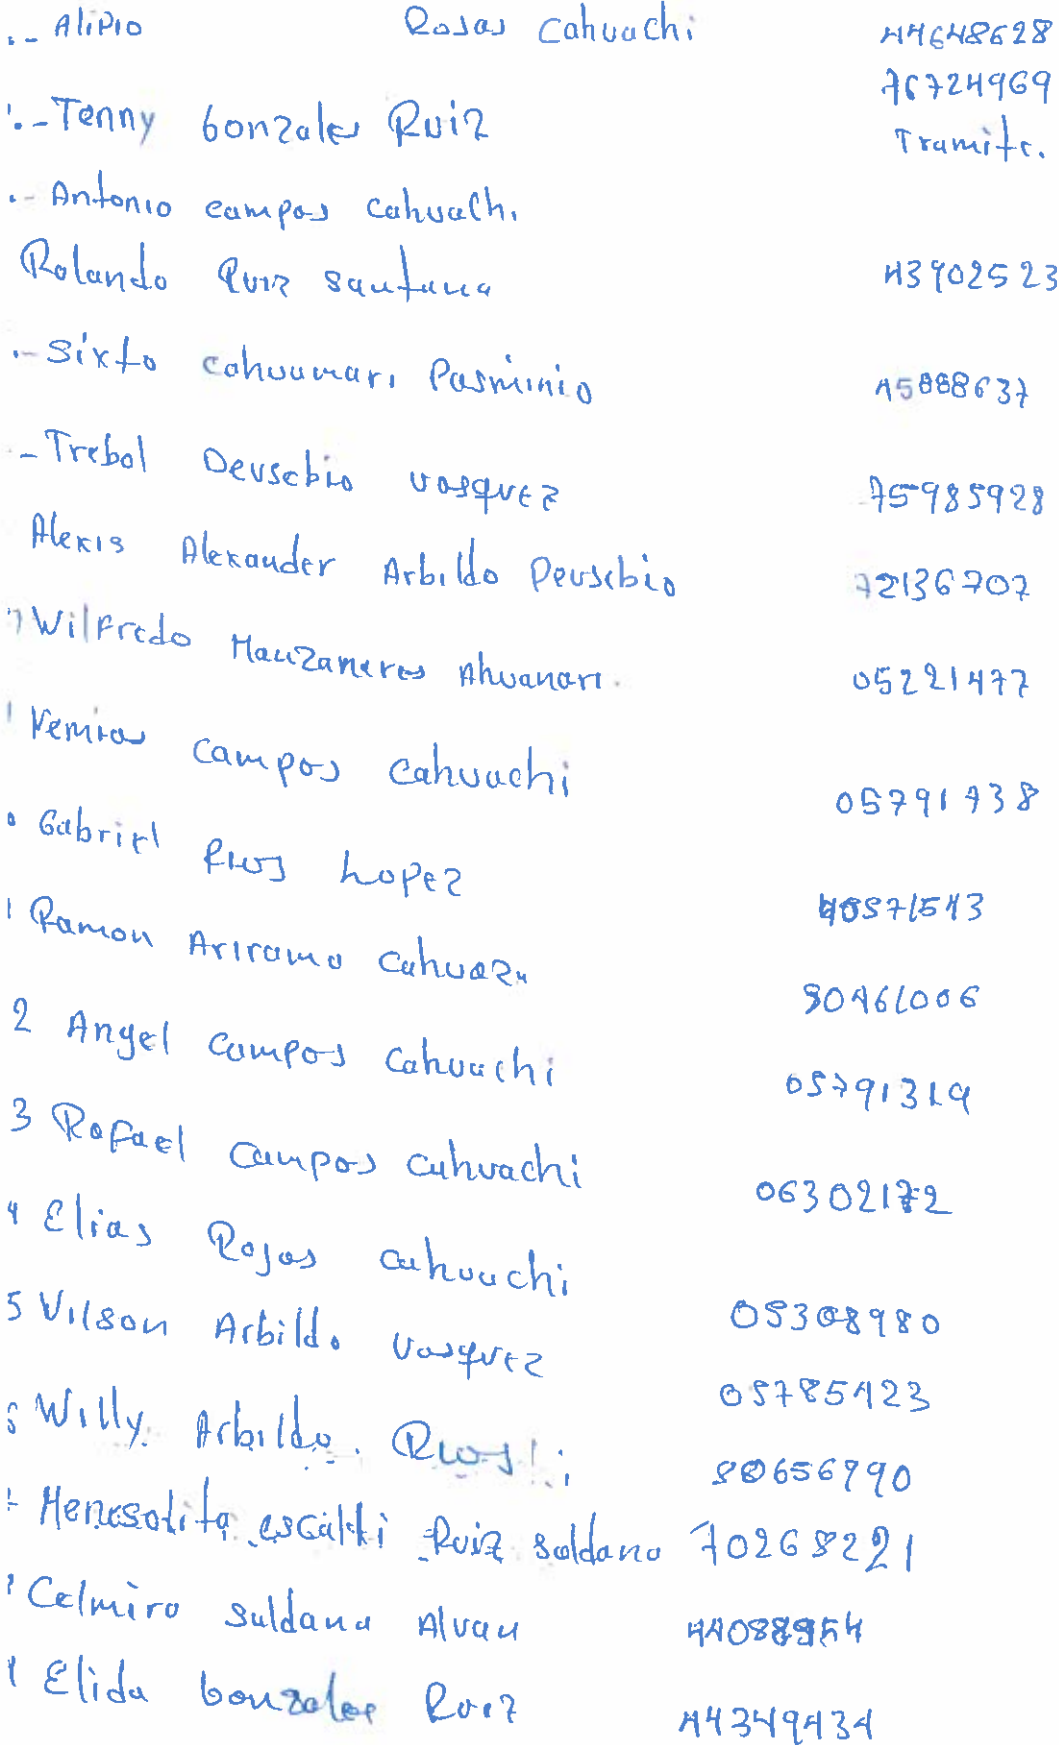 .- Alipio Rosas Cahuachi 44648628
76724969
.- Tenny Gonzales Ruiz Tramite.
.- Antonio campos cahuachi
Rolando Ruiz santana 43902523
.- Sixto cahuamari Pasminio 45888637
- Trebol Deusebio vasquez 75985928
Alexis Alexander Arbildo Deusebio 72136707
Wilfredo Manzanares Ahuanari. 05221477
Nemias campos cahuachi 05791738
Gabriel Rios Lopez 40571543
1 Ramon Arirama Cahuaza 80461006
2 Angel campos cahuachi 05791319
3 Rafael campos cahuachi 06302172
4 Elias Rojas cahuachi 05308980
5 Vilson Arbildo vasquez 05785423
Willy. Arbildo. Rios 80656790
escalli Ruiz saldana 70268221
Celmiro saldana Alvan 44088954
Elida Gonzales Ruiz 44349434